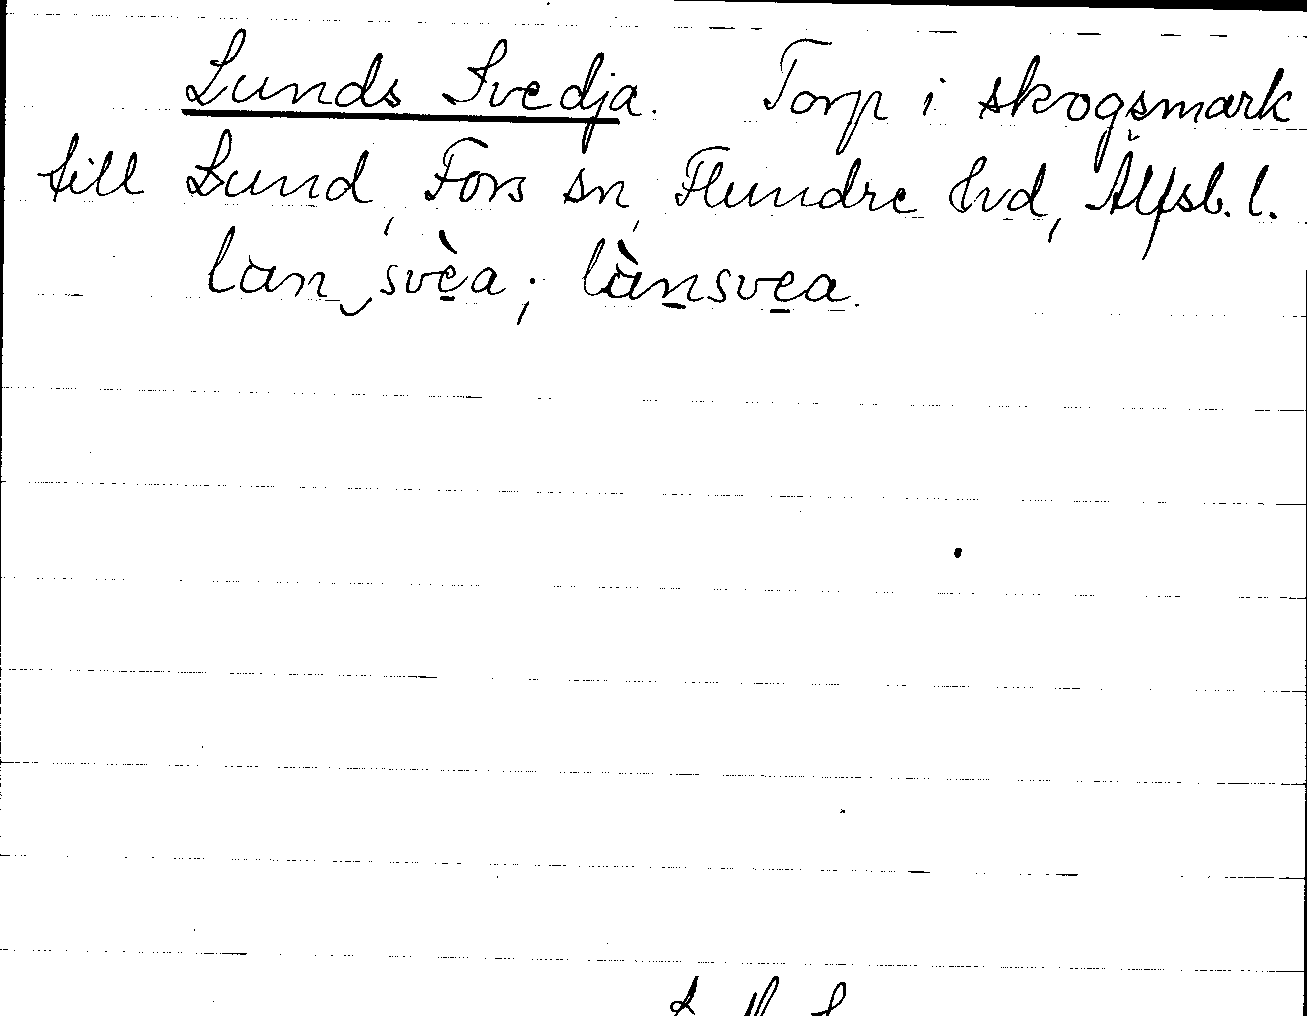 Lunds Svedja. Torp i skogsmark
till Lund, Fors sn, Flundre hd, Älfsb. l.
lan svèa; lànsvea.